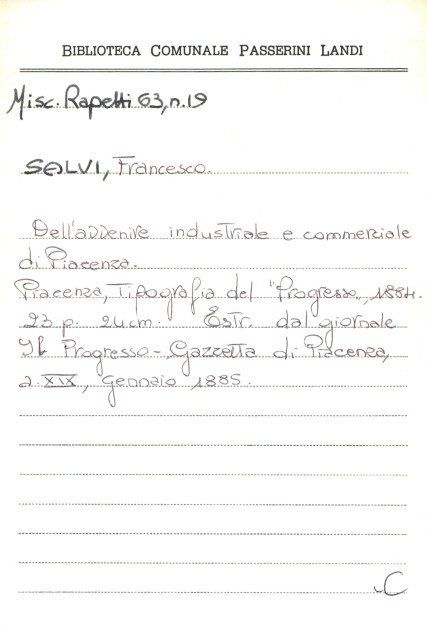 BIBLIOTECA COMUNALE PASSERINI LANDI
Misc. Rapetti 63, n. 19
SALVI, Francesco.
Dell'avvenire industriale e commerciale
di Piacenza.
Piacenza, Tipografia del "Progresso", 1884.
23 p. 24 cm. Estr. dal giornale
Il Progresso - Gazzetta di Piacenza,
a. XIX, gennaio 1885.
C